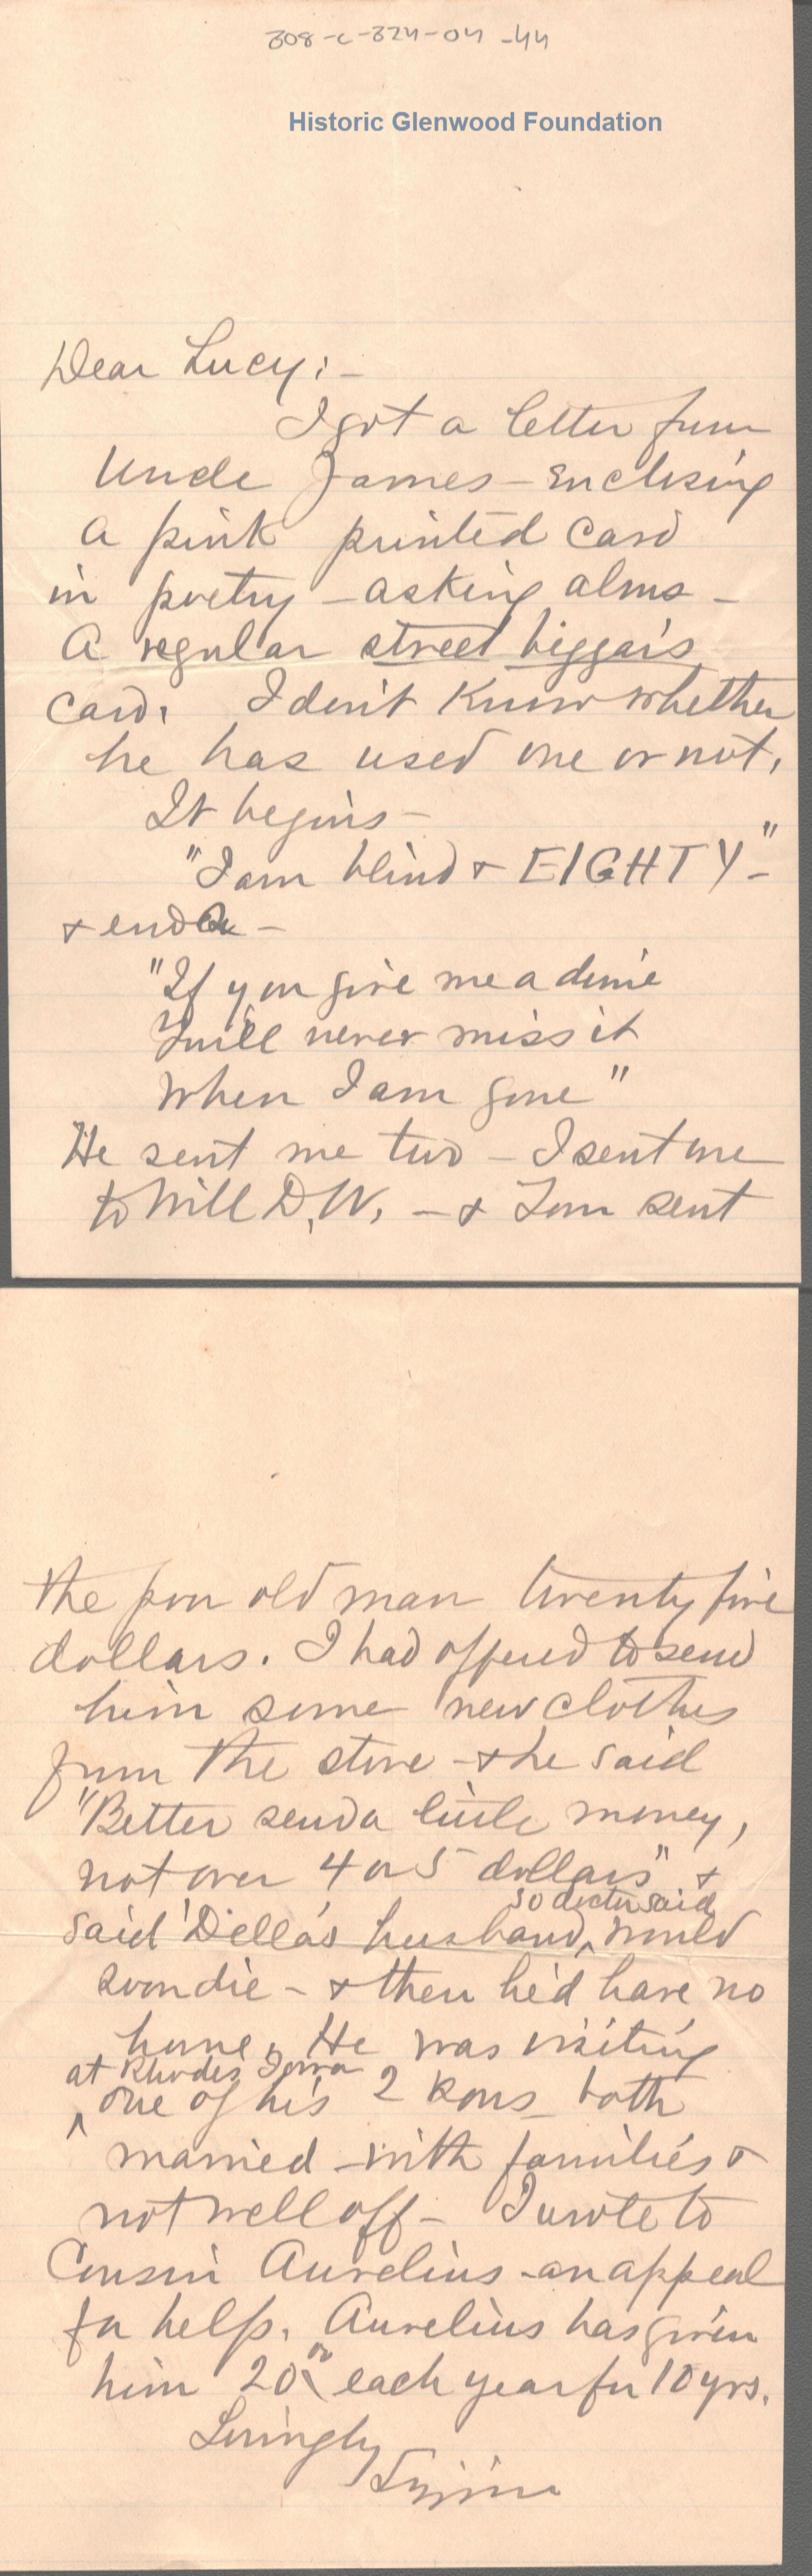 308-C-324-04-44
Historic Glenwood Foundation
Dear Lucy; -
I got a letter from
Uncle James - enclosing
a pink printed card
in poetry - asking alms -
A regular street beggar's
card. I don't know whether
he has used one or not.
It begins -
"I am blind & EIGHTY" -
& ends -
"If you give me a dime
You'll never miss it
When I am gone"
He sent me two - I sent one
to Will D. W. - & Tom sent
the poor old man twenty five
dollars. I had offered to send
him some new clothes
from the store - & he said
"Better send a little money,
not over 4 or 5 dollars" &
so doctor said
said Della's husband ^ would
soon die - & then he'd have no
home. He was visiting
at Rhodes Iowa
^ one of his 2 sons - both
married - with families &
not well off - I wrote to
Cousin Aurelius - an appeal
for help. Aurelius has given
him 20.00 each year for 10 yrs.
Lovingly